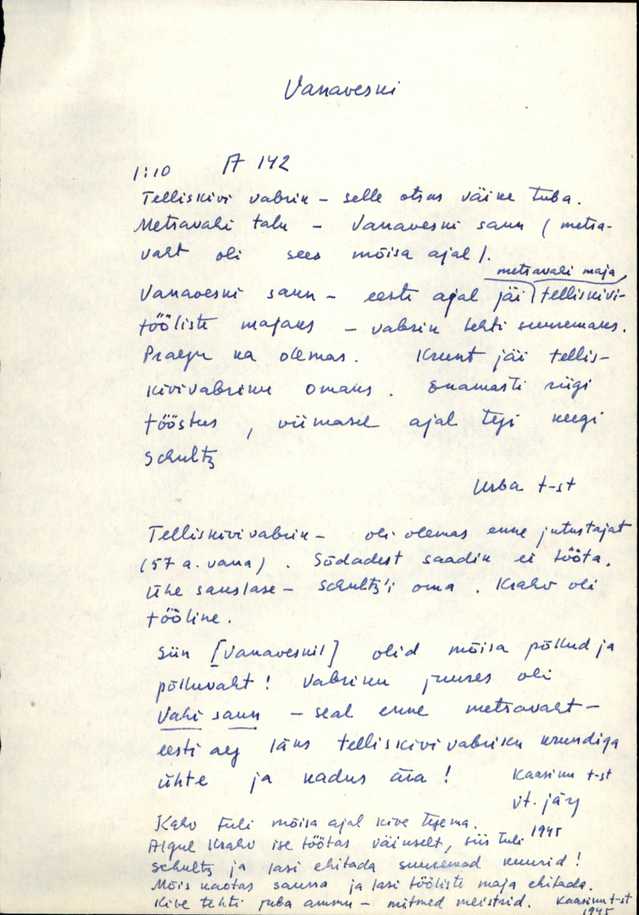 Vanaveski
1:10 A 142
Telliskivi vabrik – selle otsas väike tuba.
Metsavahi talu – Vanaveski saun (metsa-
vaht oli sees mõisa ajal).
metsavahi maja
Vanaveski saun – eesti ajal jäi telliskivi-
tööliste majaks – vabrik tehti suuremaks.
Praegu ka olemas. Krunt jäi tellis-
kivivabriku omaks. Enamasti riigi
tööstus, viimasel ajal tegi keegi
Schultz
Urba t-st
Telliskivivabrik – oli olemas enne jutustajat
(57 a. vana). Sõdadest saadik ei tööta.
Ühe sakslase – Schultz'i oma. Krahv oli
tööline.
Siin [Vanaveskil] olid mõisa põllud ja
põlluvaht! Vabriku juures oli
Vahi saun – seal enne metsavaht –
eesti aeg läks telliskivivabriku krundiga
ühte ja kadus ära! Kaasiku t-st
vt. järg
Kahv tuli mõisa ajal kive tegema.
Algul Krahv ise töötas väikselt, siis tuli 1945
Schultz ja lasi ehitada suuremad kuurid!
Mõis kaotas sauna ja lasi tööliste maja ehitada.
Kive tehti juba ammu – mitmed meistrid. Kaasiku t-st
1945